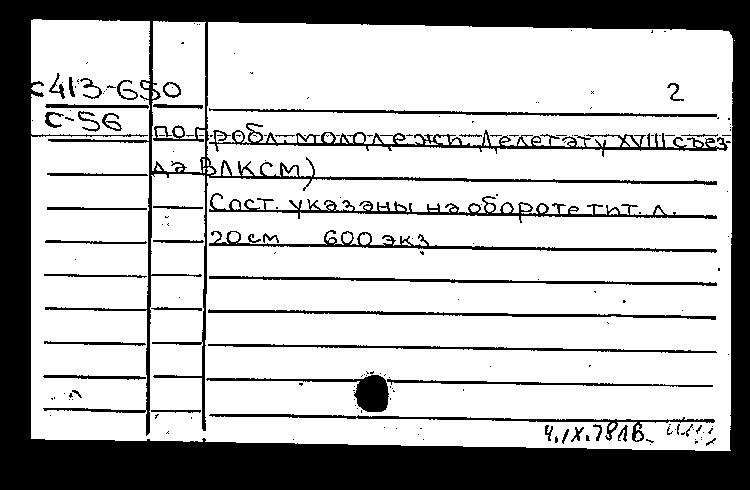 с413-650 2
С-56
по пробл. молодежи. Делегату XVIII съез-
да ВЛКСМ)
Сост. указаны на обороте тит. л.
20 см 600 экз.
4.IX.78